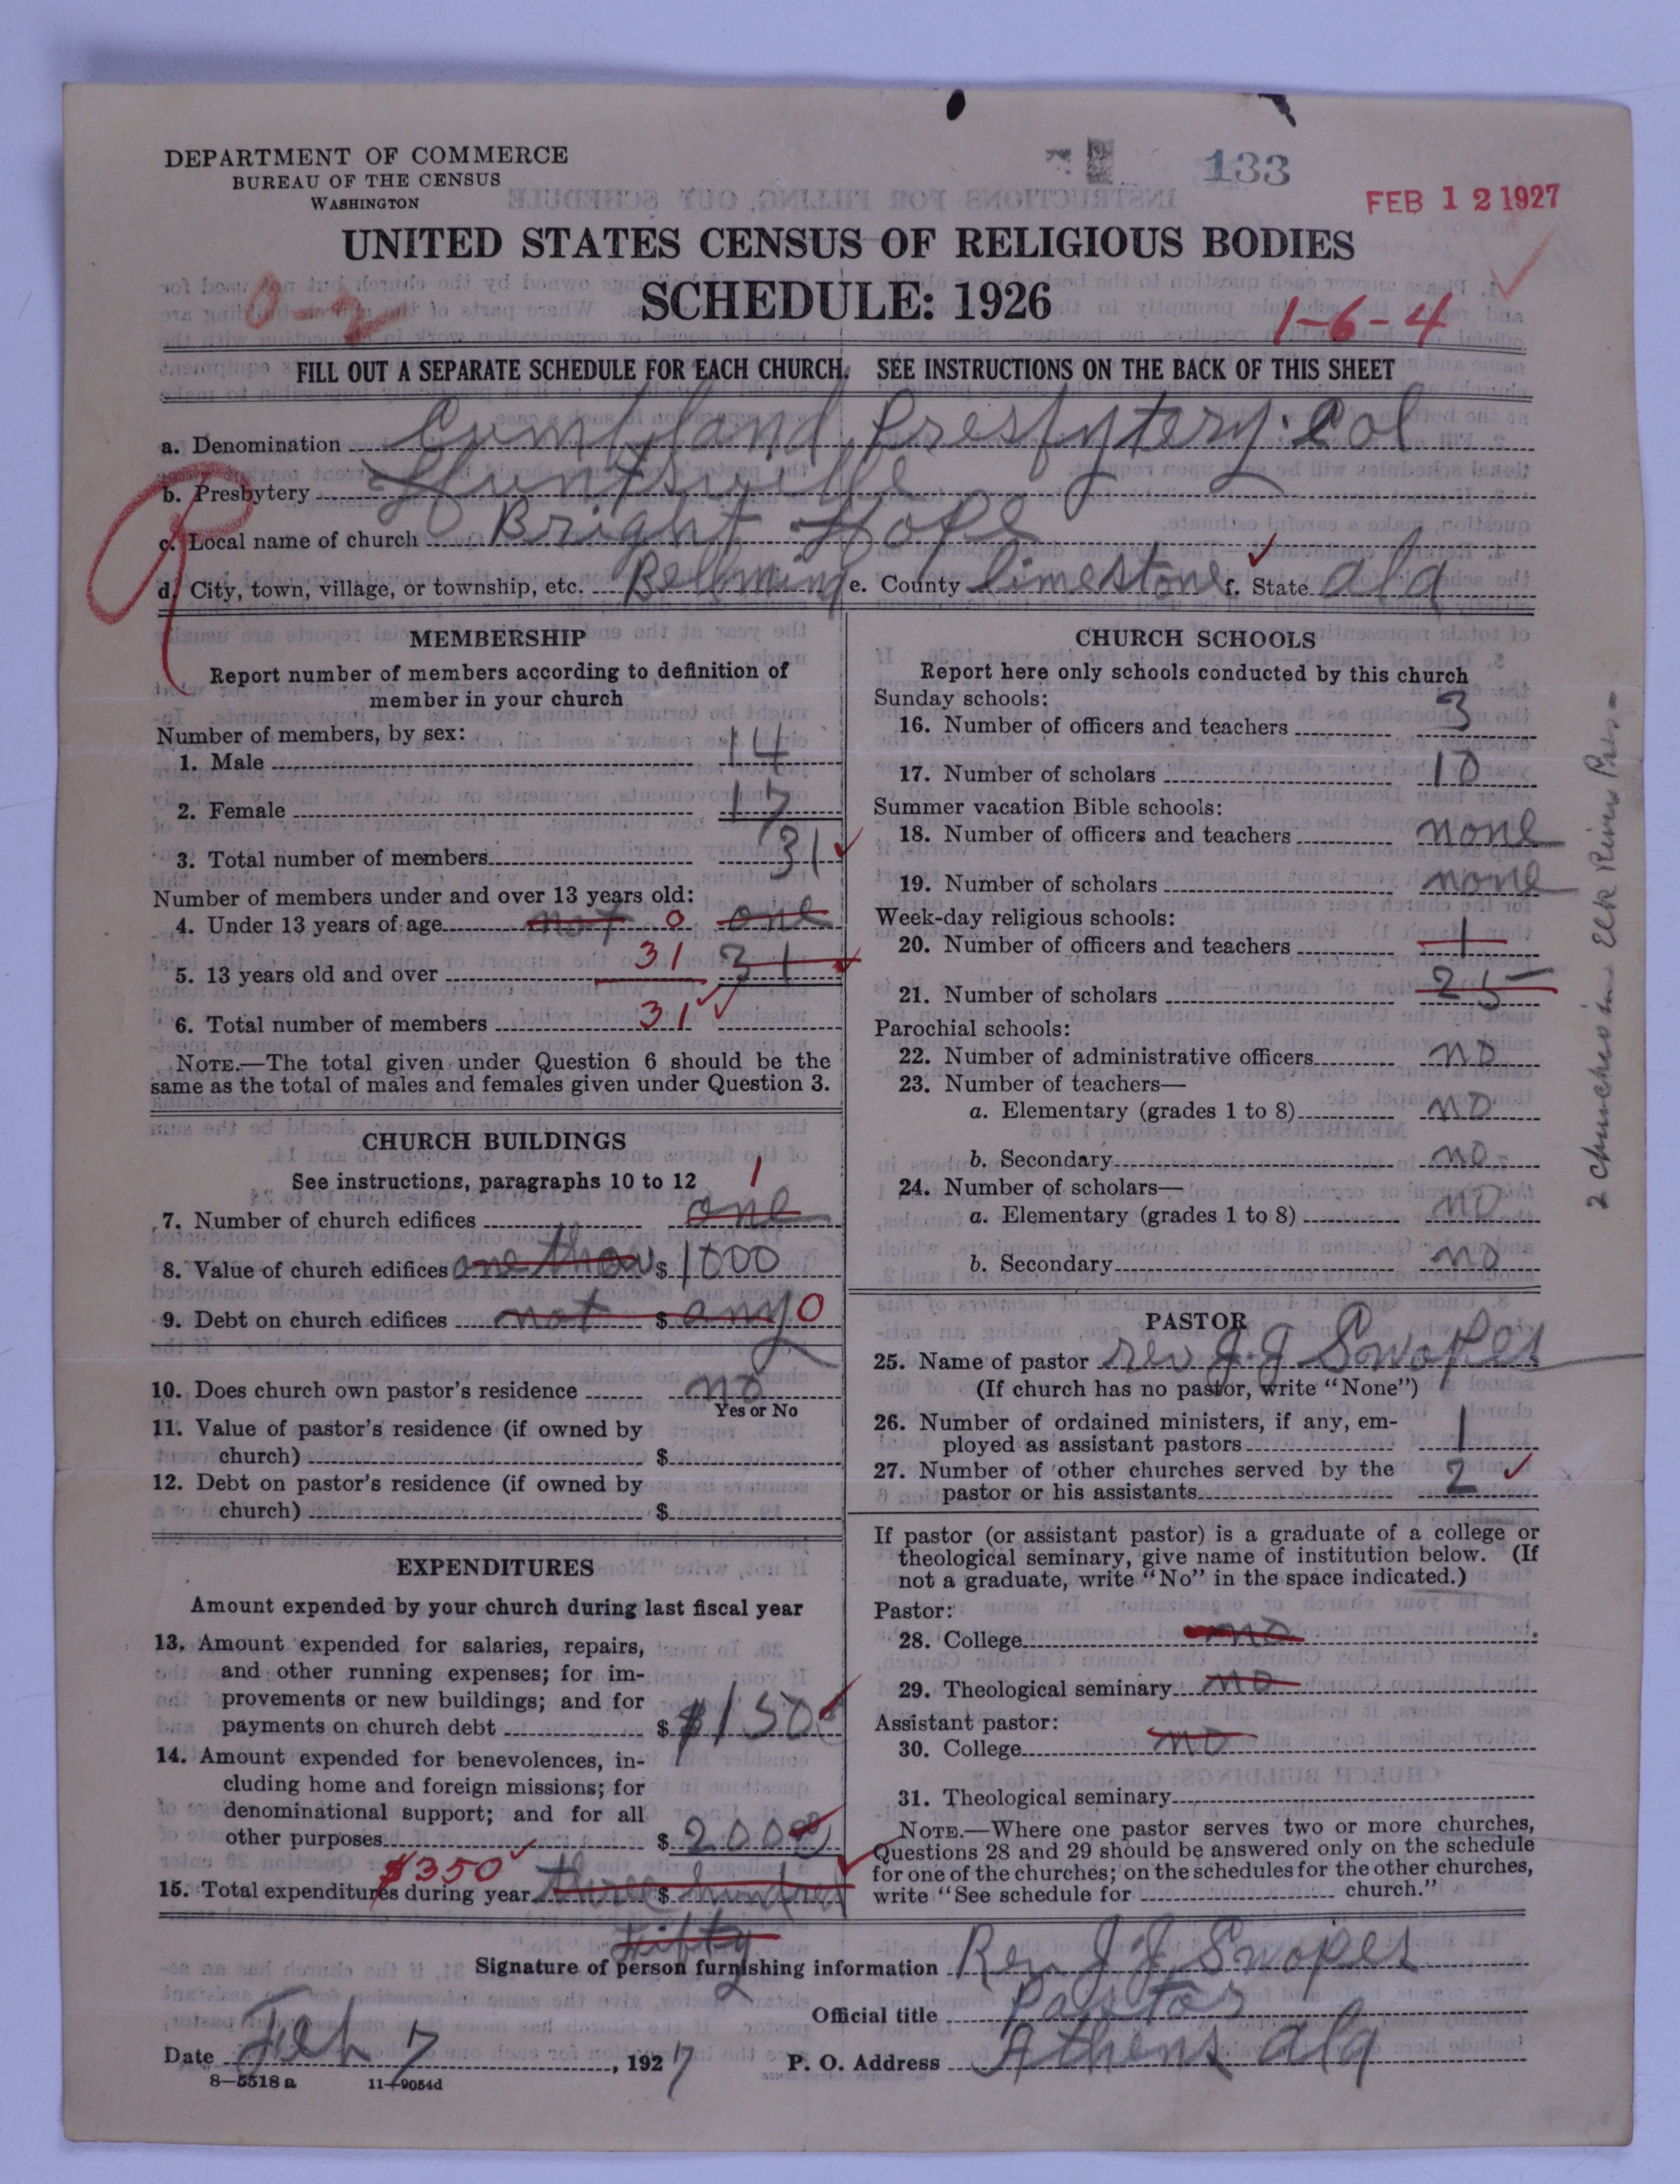 DEPARTMENT OF COMMERCE
BUREAU OF THE CENSUS
WASHINGTON
133
FEB 12 1927
UNITED STATES CENSUS OF RELIGIOUS BODIES
SCHEDULE: 1926
0-2
1-6-4
FILL OUT A SEPARATE SCHEDULE FOR EACH CHURCH. SEE INSTRUCTIONS ON THE BACK OF THIS SHEET
a. Denomination Cumbland Presbytery. Col
b. Presbytery Huntsville
c. Local name of church Bright Hope
d. City, town, village, or township, etc. Bellming e. County limestone f. State ala
MEMBERSHIP
Report number of members according to definition of
member in your church
Number of members, by sex:
1. Male 14
2. Female 17
3. Total number of members 31
Number of members under and over 13 years old:
4. Under 13 years of age not 0 one
5. 13 years old and over 31 31
6. Total number of members 31
NOTE.—The total given under Question 6 should be the
same as the total of males and females given under Question 3.
CHURCH BUILDINGS
See instructions, paragraphs 10 to 12
1
7. Number of church edifices one
8. Value of church edifices one thou $ 1000
9. Debt on church edifices not $ any 0
10. Does church own pastor's residence no
Yes or No
11. Value of pastor's residence (if owned by
church) $
12. Debt on pastor's residence (if owned by
church) $
EXPENDITURES
Amount expended by your church during last fiscal year
13. Amount expended for salaries, repairs,
and other running expenses; for im-
provements or new buildings; and for
payments on church debt $ $150
14. Amount expended for benevolences, in-
cluding home and foreign missions; for
denominational support; and for all
other purposes $ 200
$350
15. Total expenditures during year three $ hundred
fifty
CHURCH SCHOOLS
Report here only schools conducted by this church
Sunday schools:
16. Number of officers and teachers 3
17. Number of scholars 10
Summer vacation Bible schools:
18. Number of officers and teachers none
19. Number of scholars none
Week-day religious schools:
20. Number of officers and teachers 1
21. Number of scholars 25
Parochial schools:
22. Number of administrative officers no
23. Number of teachers—
a. Elementary (grades 1 to 8) no
b. Secondary no
24. Number of scholars—
a. Elementary (grades 1 to 8) no
b. Secondary no
PASTOR
25. Name of pastor rev J. J Swopes
(If church has no pastor, write "None")
26. Number of ordained ministers, if any, em-
ployed as assistant pastors 1
27. Number of other churches served by the
pastor or his assistants 2
If pastor (or assistant pastor) is a graduate of a college or
theological seminary, give name of institution below. (If
not a graduate, write "No" in the space indicated.)
Pastor:
28. College no
29. Theological seminary no
Assistant pastor:
30. College no
31. Theological seminary
NOTE.—Where one pastor serves two or more churches,
Questions 28 and 29 should be answered only on the schedule
for one of the churches; on the schedules for the other churches,
write "See schedule for church."
2 churches in Elk River Pres-
Signature of person furnishing information Rev J J Swopes
Official title Pastor
Date Feb 7, 1927 P. O. Address Athens ala
8—5518 a 11—9054d